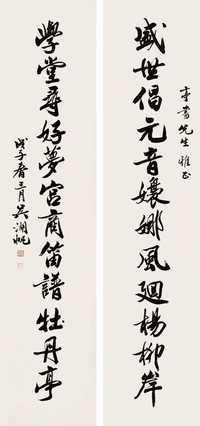 盛世倡元音嬝娜風迴楊柳岸
學堂尋好夢宮商笛譜牡丹亭
先生雅正
戊子春三月吳湖帆